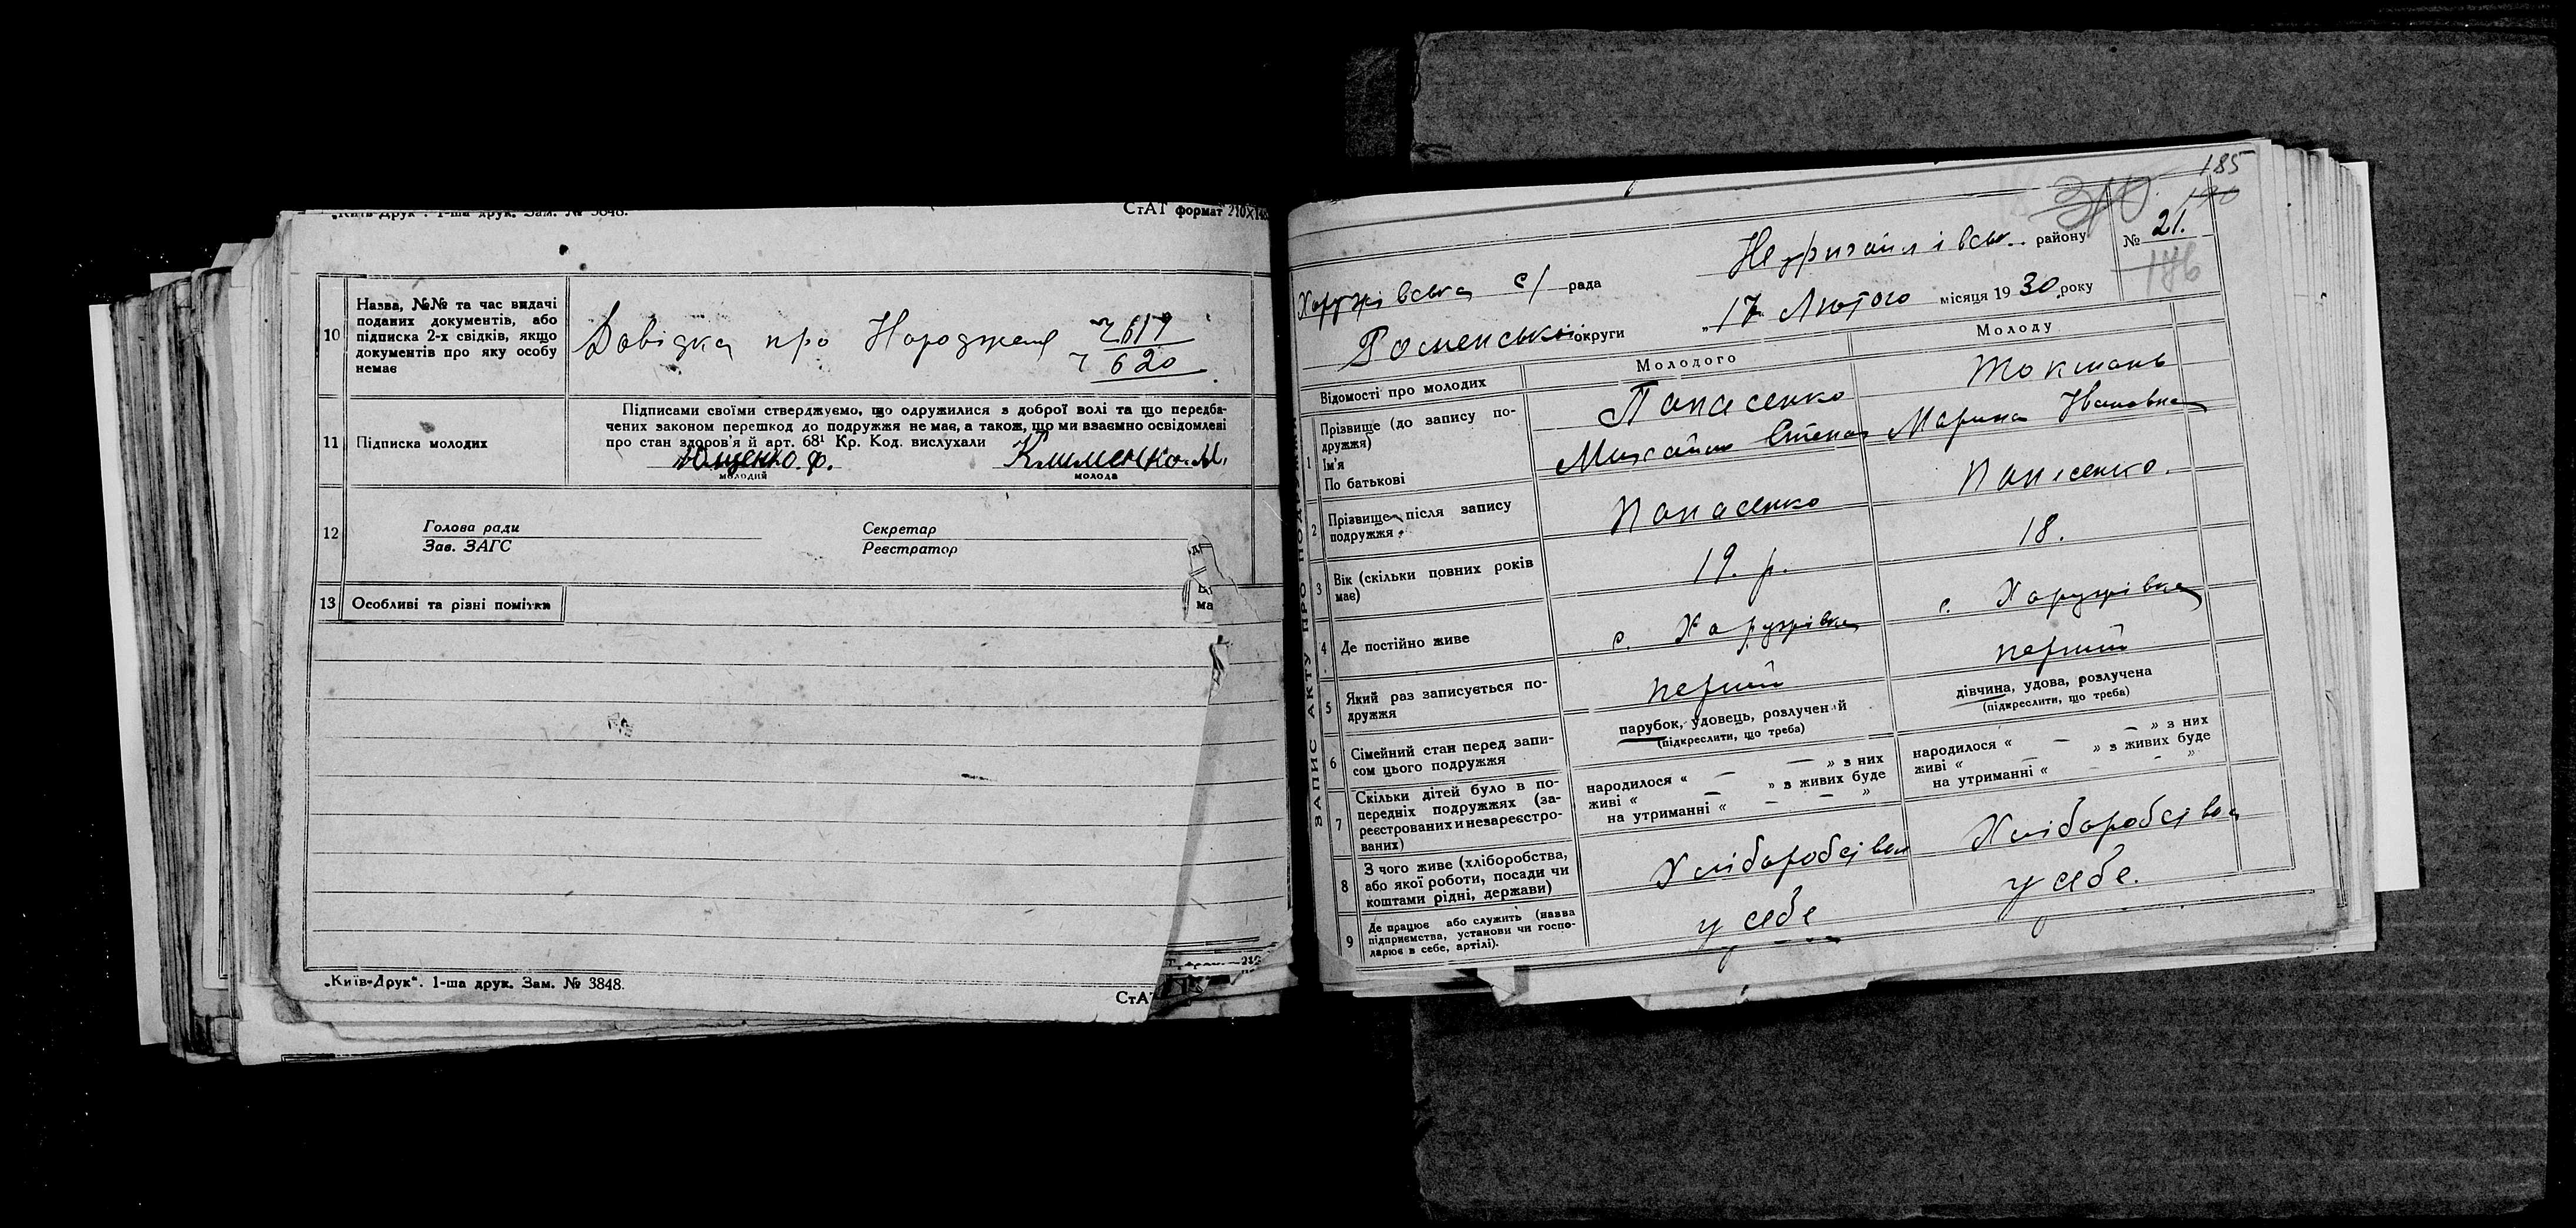 „Київ-Друк“. 1-ша друк. Зам. № 3848.
СтАТ формат 210×148
10 Назва, №№ та час видачі
поданих документів, або
підписка 2-х свідків, якщо
документів про яку особу
немає
Довідка про Народженя 619
620
11 Підписка молодих
Підписами своїми стверджуємо, що одружилися з доброї волі та що передба-
чених законом перешкод до подружжя не має, а також, що ми взаємно освідомлені
про стан здоров'я й арт. 68¹ Кр. Код. вислухали
Ющенко Ф. Клименко М.
молодий молода
12 Голова ради Секретар
Зав. ЗАГС Реєстратор
13 Особливі та різні помітки
„Київ-Друк“. 1-ша друк. Зам. № 3848.
СтАТ
ЗАПИС АКТУ ПРО ПОДРУЖЖЯ
185
Харужівська с/ рада Недригайлівськ. району № 21.
146
Роменської округи „17 Лютого місяця 1930 року
Відомості про молодих Молодого Молоду
1 Прізвище (до запису по-
дружжя)
Ім'я
По батькові
Панасенко
Михайло Степан
Токмань
Марина Івановна
2 Прізвище після запису
подружжя
Панасенко Панасенко.
3 Вік (скільки повних років
має)
19. р. 18.
4 Де постійно живе с. Харужівка с. Харужівка
5 Який раз записується по-
дружжя
перший перший
6 Сімейний стан перед запи-
сом цього подружжя
парубок, удовець, розлучений
(підкреслити, що треба)
дівчина, удова, розлучена
(підкреслити, що треба)
7 Скільки дітей було в по-
передніх подружжях (за-
реєстрованих и незареєстро-
ваних)
народилося « — — » з них
живі « — » з живих буде
на утриманні « — — »
народилося « — — » з них
живі « — » з живих буде
на утриманні « - - »
8 З чого живе (хліборобства,
або якої роботи, посади чи
коштами рідні, держави)
Хліборобства Хліборобства
9 Де працює або служить (назва
підприємства, установи чи госпо-
дарює в себе, артілі).
у себе у себе.